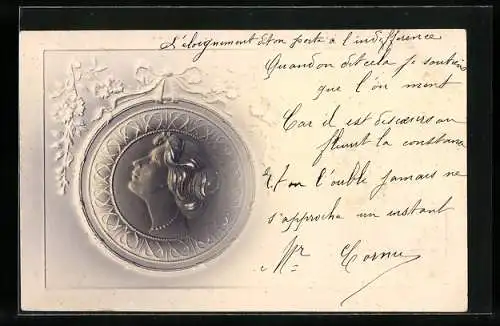 L'éloignement dit on porte à l'indifférence
Quand on dit cela je soutiens
que l'on ment
Car il est des cœurs ou
fleurit la constance
Et on l'oublie jamais ne
s'approcha un instant
Mr Cornu